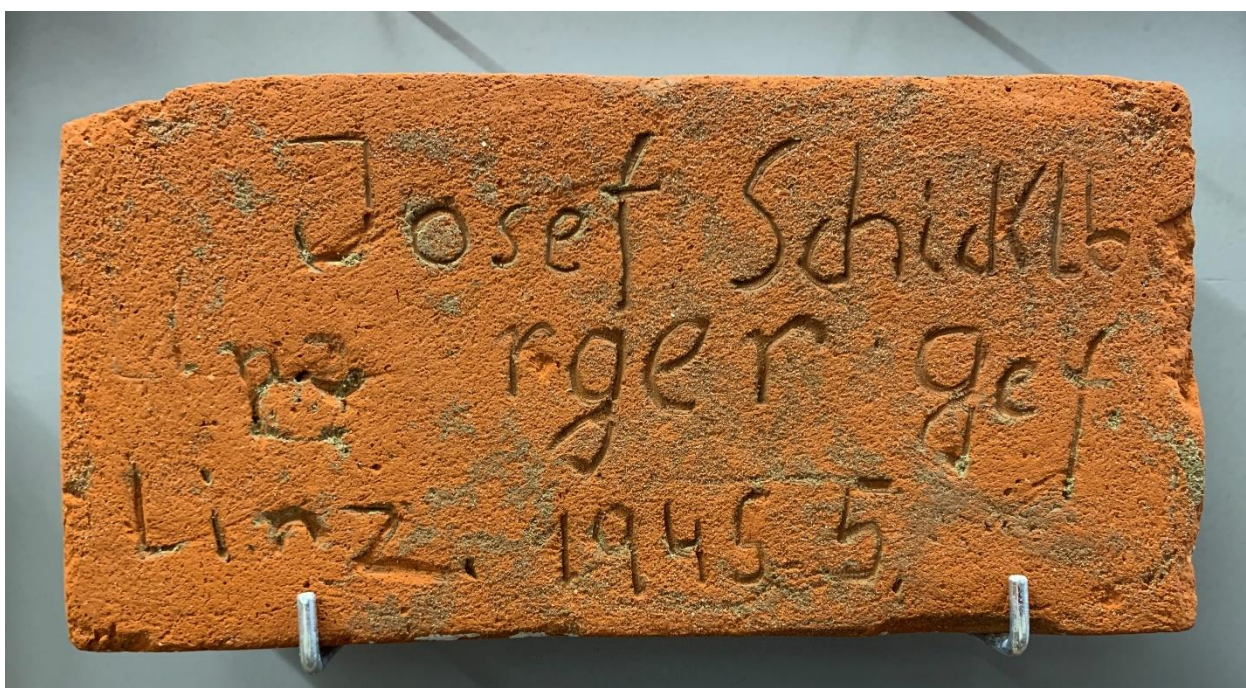 Josef Schicklb
rger gef.
Linz. 1945 5.